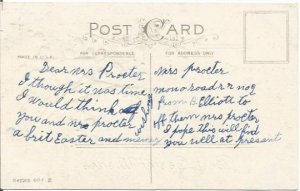 POST CARD
MADE IN U.S.A.
FOR CORRESPONDENCE
FOR ADDRESS ONLY
Dear mrs Procter
I thought it was time
I would think
you and mrs procter
a brit Easter and
mrs procter
mono road r r no 3
from B. Elliott to
mrs procter
I hope this will find
you well at preasent
SERIES 601 E